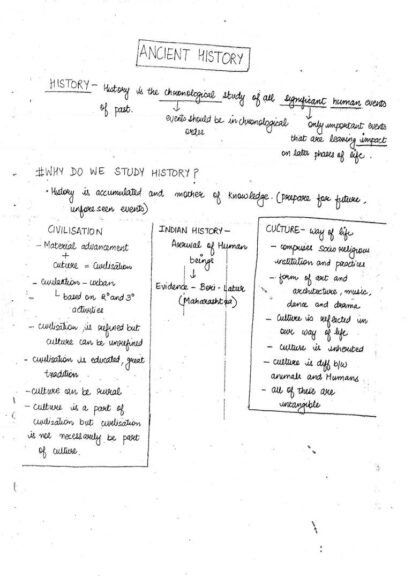 ANCIENT HISTORY
HISTORY - History is the chronological study of all significant human events
of past.
↓
events should be in chronological
order
↓
only important events
that are leaving impact
on later phases of life.
#WHY DO WE STUDY HISTORY?
• History is accumulated and mother of knowledge. (Prepare for future,
unforeseen events)
CIVILISATION
- Material advancement
+
culture = civilisation
- civilisation - urban
└ based on 2° and 3°
activities
- civilisation is refined but
culture can be unrefined
- civilisation is educated, great
tradition
- culture can be rural
- culture is a part of
civilization but civilization
is not necessarily be part
of culture.
INDIAN HISTORY -
Arrival of Human
beings
↓
Evidence - Bori - Latur
(Maharashtra)
CULTURE - way of life
- comprises socio religious
institution and practices
- form of art and
architecture, music,
dance and drama
- culture is reflected in
our way of life
- culture is inherited
- culture is diff b/w
animals and Humans
- all of theis are
intangible